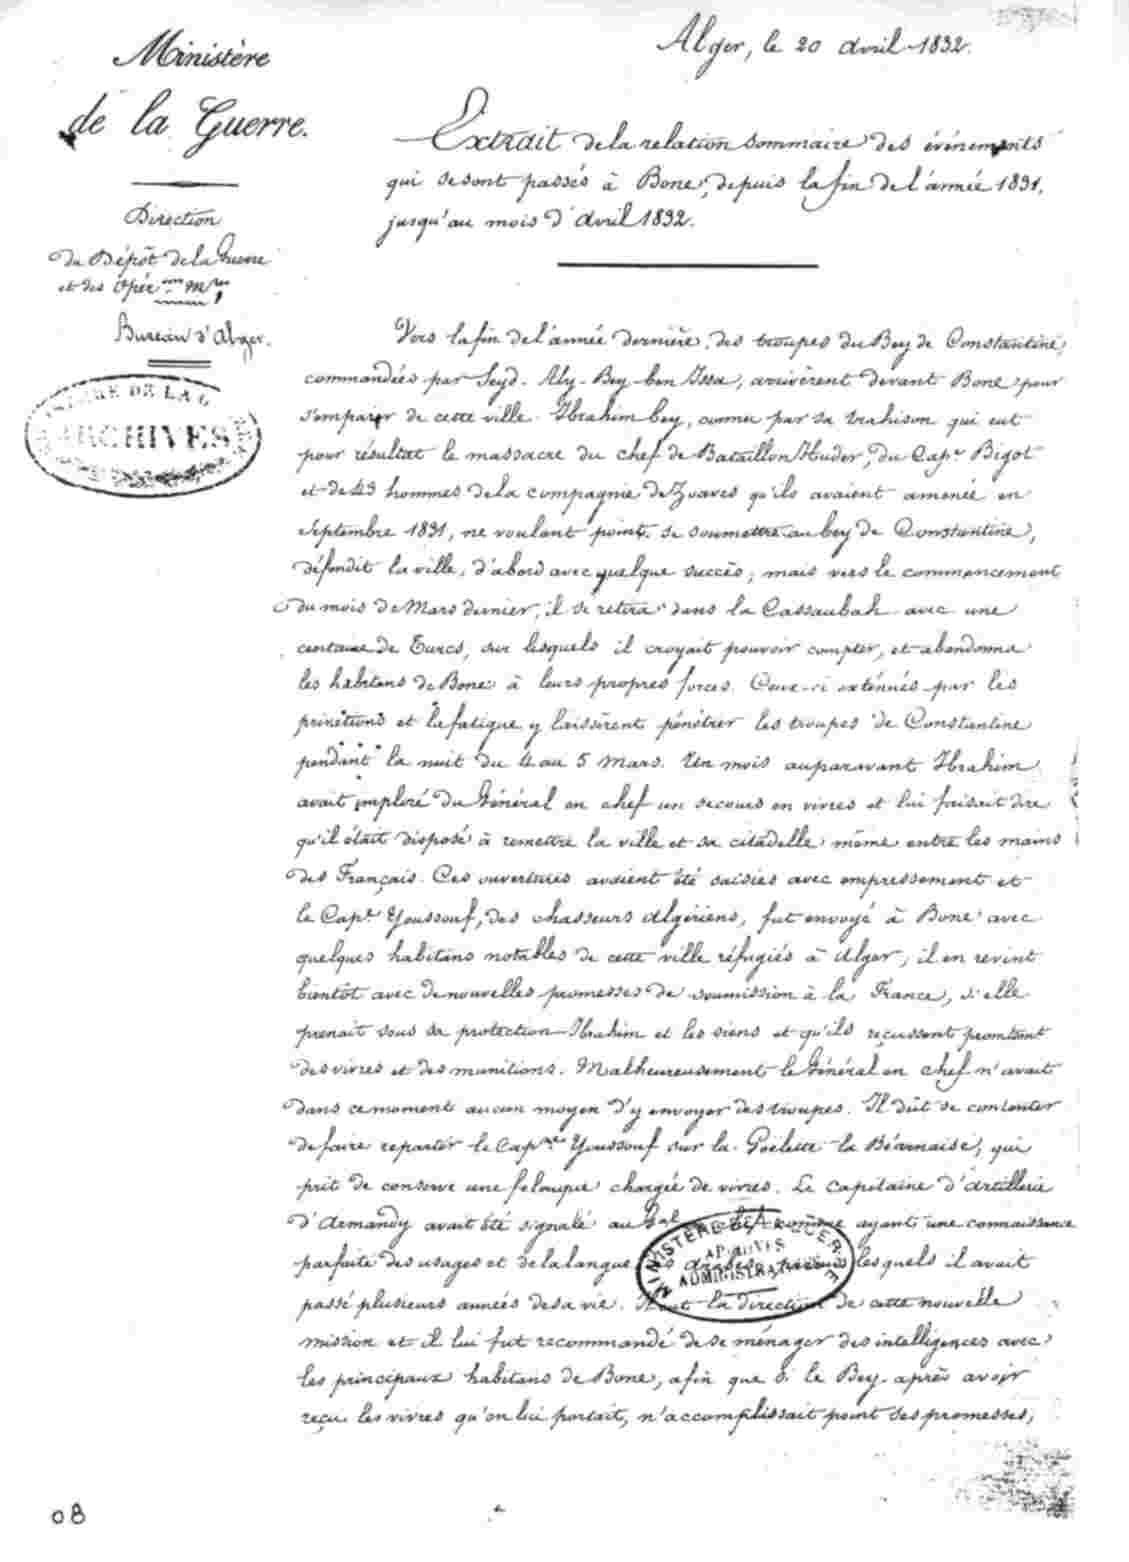 Ministère
de la Guerre.
Direction
du Dépôt de la Guerre
et des Opér.ons Mres
Bureau d'Alger.
ARCHIVES
Alger, le 20 avril 1832.
Extrait de la relation sommaire des événements
qui se sont passés à Bone, depuis la fin de l'année 1831,
jusqu'au mois d'avril 1832.
Vers la fin de l'année dernière, des troupes du Bey de Constantine,
commandées par Seyd-Aly-Bey-ben Issa, arrivèrent devant Bone pour
s'emparer de cette ville. Ibrahim bey, connu par sa trahison qui eut
pour résultat le massacre du chef de Bataillon Huder, du Capne Bigot
et de 43 hommes de la compagnie de Zuaves qu'ils avaient amenée en
septembre 1831, ne voulant point se soumettre au bey de Constantine,
défendit la ville, d'abord avec quelque succès; mais vers le commencement
du mois de Mars dernier, il se retira dans la Cassaubah avec une
centaine de Turcs, sur lesquels il croyait pouvoir compter, et abandonna
les habitans de Bone à leurs propres forces. Ceux-ci exténués par les
privations et la fatigue y laissèrent pénétrer les troupes de Constantine
pendant la nuit du 4 au 5 Mars. Un mois auparavant Ibrahim
avait imploré du Général en chef un secours en vivres et lui faisait dire
qu'il était disposé à remettre la ville et sa citadelle même entre les mains
des Français. Ces ouvertures avaient été saisies avec empressement et
le Capne Youssouf, des chasseurs algériens, fut envoyé à Bone avec
quelques habitans notables de cette ville réfugiés à Alger; il en revint
bientôt avec de nouvelles promesses de soumission à la France, si elle
prenait sous sa protection Ibrahim et les siens et qu'ils reçussent promtement
des vivres et des munitions. Malheureusement le Général en chef n'avait
dans ce moment aucun moyen d'y envoyer des troupes. Il dût se contenter
de faire repartir le Capne Youssouf sur la Goëlette la Béarnaise, qui
prit de conserve une felouque chargée de vivres. Le capitaine d'artillerie
d'Armandy avait été signalé au Gal en chef comme ayant une connaissance
parfaite des usages et de la langue des arabes, parmi lesquels il avait
passé plusieurs années de sa vie. Il eut la direction de cette nouvelle
mission et il lui fut recommandé de se ménager des intelligences avec
les principaux habitans de Bone, afin que si le Bey après avoir
reçu les vivres qu'on lui portait, n'accomplissait point ses promesses,
MINISTÈRE DE LA GUERRE
ARCHIVES
ADMINISTRATIVES
08